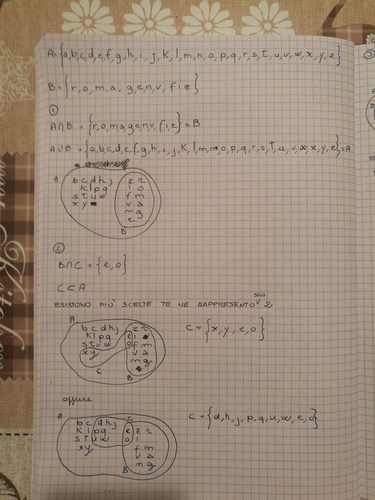 A={a,b,c,d,e,f,g,h,i,j,k,l,m,n,o,p,q,r,s,t,u,v,w,x,y,z}
B={r,o,m,a,g,e,n,v,f,i,z}
①
A∩B = {r,o,m,a,g,e,n,v,f,i,z} = B
A∪B = {a,b,c,d,e,f,g,h,i,j,k,l,m,n,o,p,q,r,s,t,u,v,w,x,y,z}=A
A
b c d h j
k l p q
s t u w
x y
B
②
B∩C = {e,o}
C⊂A
ESISTONO PIÙ SCELTE TE NE RAPPRESENTO SOLO 2
A
b c d h j
k l p q
s t u w
x y
C
B
C = {x,y,e,o}
oppure
A
C
b c d h j
k l p q
s t u w
x y
B
C = {d,h,j,p,q,u,w,e,o}